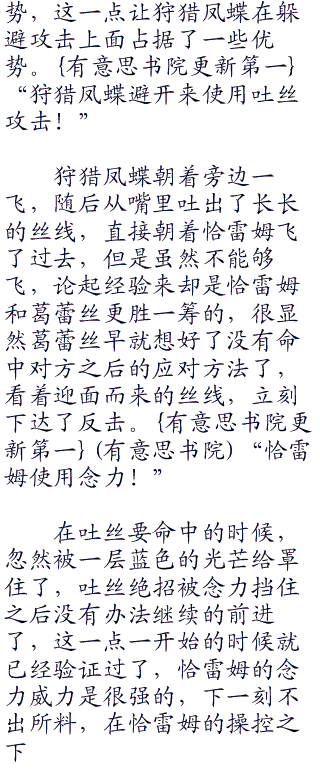 势，这一点让狩猎凤蝶在躲
避攻击上面占据了一些优
势。{有意思书院更新第一}
“狩猎凤蝶避开来使用吐丝
攻击！”
狩猎凤蝶朝着旁边一
飞，随后从嘴里吐出了长长
的丝线，直接朝着恰雷姆飞
了过去，但是虽然不能够
飞，论起经验来却是恰雷姆
和葛蕾丝更胜一筹的，很显
然葛蕾丝早就想好了没有命
中对方之后的应对方法了，
看着迎面而来的丝线，立刻
下达了反击。{有意思书院更
新第一}(有意思书院)“恰雷
姆使用念力！”
在吐丝要命中的时候，
忽然被一层蓝色的光芒给罩
住了，吐丝绝招被念力挡住
之后没有办法继续的前进
了，这一点一开始的时候就
已经验证过了，恰雷姆的念
力威力是很强的，下一刻不
出所料，在恰雷姆的操控之
下